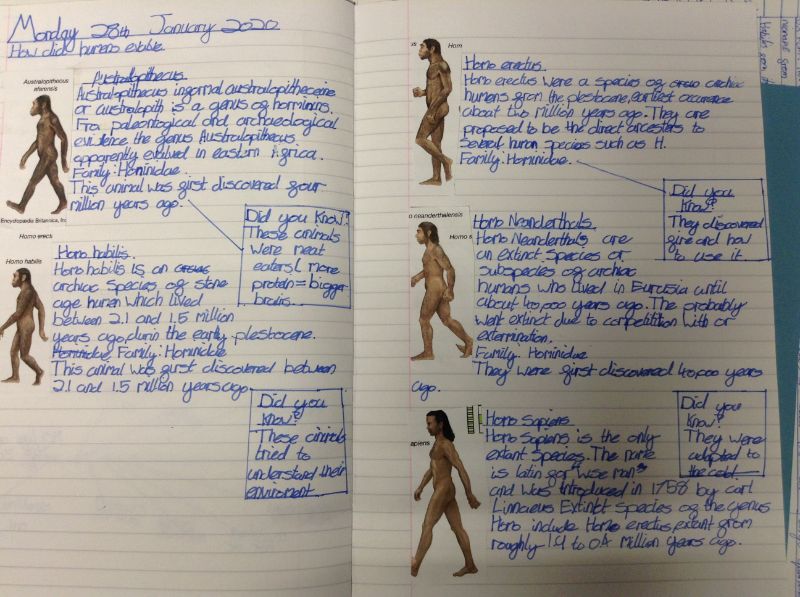 Monday 28th January 2020
How did humans evolve.
Australopithecus
afarensis
Australopithecus
Australopithecus informal australopithecine
or australopith is a genus of hominins.
From paleontological and archaeological
evidence the genus Australopithecus
apparently evolved in eastern Africa.
Family: Hominidae.
This animal was first discovered four
million years ago.
Encyclopædia Britannica, Inc
Did you know?
These animals
were meat
eaters (more
protein = bigger
brains.
Homo erectu
Homo habilis
Homo habilis.
Homo habilis is an
archaic species of stone
age human which lived
between 2.1 and 1.5 million
years ago, durin the early plestocene.
Hominidae, Family: Hominidae
This animal was first discovered between
2.1 and 1.5 million years ago.
Did you
know?
These animals
tried to
understand their
enviroment
us
Hom
Homo erectus.
Homo erectus were a species of archaic
humans from the plestocene, earliest occurence
about two million years ago. They are
proposed to be the direct ancesters to
several human species such as H.
Family: Hominidae.
Did you
know?
They discovered
fire and how
to use it.
o neanderthalensis
Homo s
Homo Neanderthals.
Homo Neanderthals are
an extinct species or
subspecies of archaic
humans who lived in Eurasia until
about 40,000 years ago. The probably
went extinct due to competition with or
extermination.
Family: Hominidae
They were first discovered 40,000 years
ago.
Did you
know?
They were
adapted to
the cold.
apiens
Homo Sapiens
Homo Sapiens is the only
extant species. The name
is latin for "wise man"
and was introduced in 1758 by Carl
Linnaeus Extinct species of the genus
Homo include Homo erectus, extant from
roughly 1.9 to 0.4 million years ago.